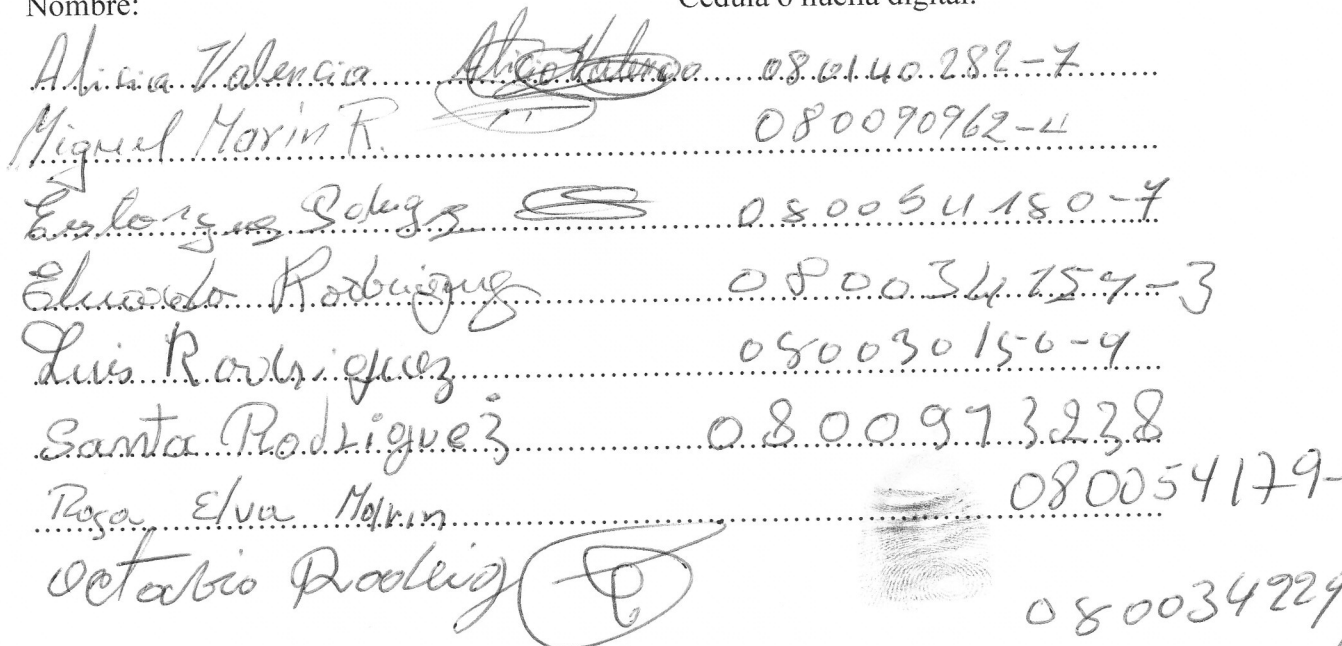 Nombre: Cédula o huella digital:
Alicia Valencia Alicia Valencia 080140282-7
Miguel Marin R. 080090962-4
080054180-7
Eduardo Rodriguez 080034254-3
Luis Rodriguez 080030150-9
Santa Rodriguez 0800913238
Rosa Elva Marin 080054179-
Octabio Rodrig 080034229